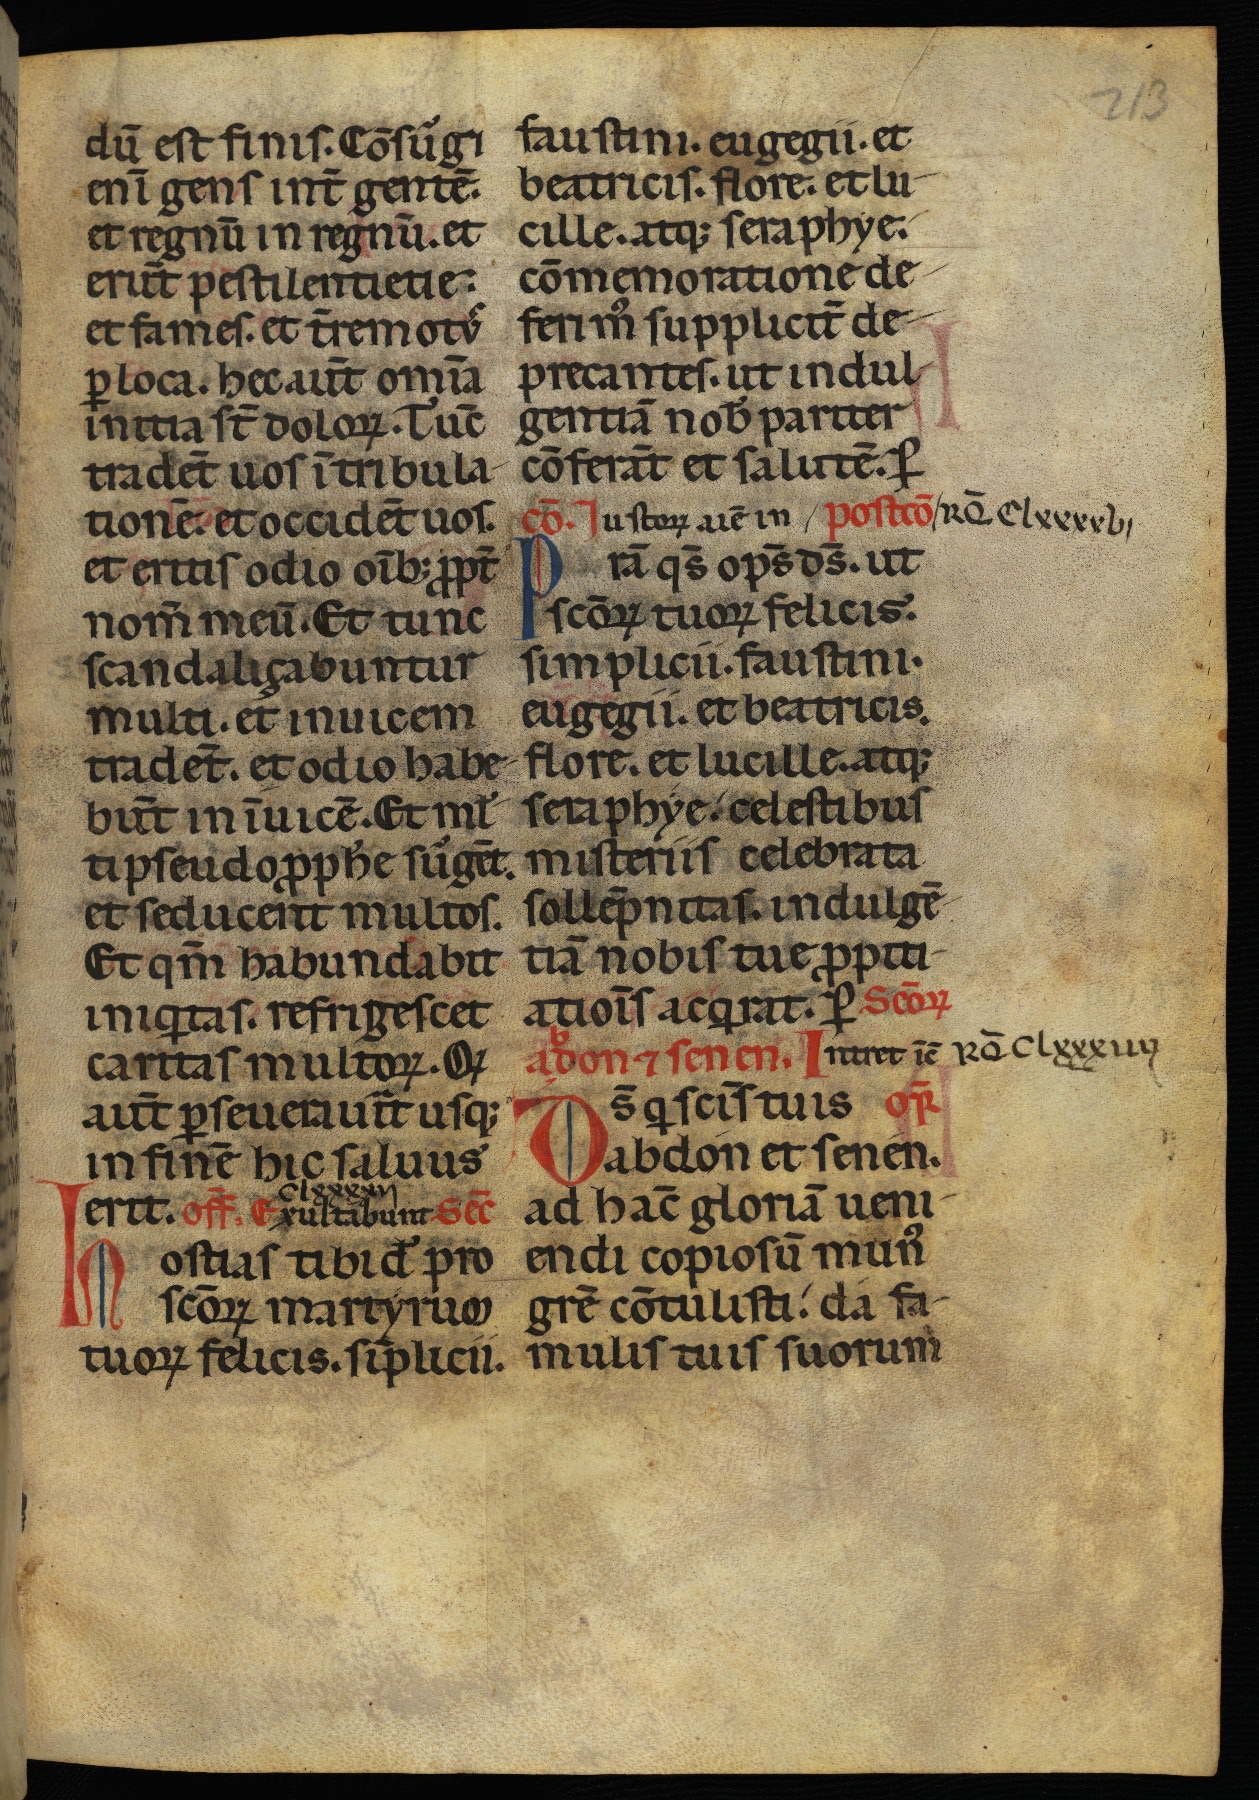 213
dū est finis. Cōsurgi
enī gens int̄ gentē.
et regnū in regnū. et
erūt pestilentietie:
et fames. et t̄remotus
ꝑ loca. hec aūt om̄ia
initia st̄ doloꝝ. Tūc
tradēt uos ītribula-
tionē. et occidēt uos.
et eritis odio oīb; ꝓpt̄
nom̄ meū. Et tunc
scandaliçabuntur
multi. et inuicem
tradēt. et odio habe-
būt in īuicē. Et ml'
ti pseudoꝓphe surgēt.
et seducent multos.
Et qm̄ habundabit
iniqitas. refrigescet
caritas multoꝝ. Qꝝ
aūt ꝑseuerauīt usq;
in finē hic saluus
Clxxxxıȷ
erit. off̄. Exultabunt Sec̄
Hostias tibi d' pro
scōꝝ martyrum
tuoꝝ felicis. sīplicii.
faustini. eugegii. et
beatricis. flore. et lu-
cille. atq; seraphye.
cōmemoratione de-
ferim' suppliciт̄ de-
precantes. ut indul-
gentiā nob' pariter
cōferāt et salutē. ꝑ
cō. Iustoꝝ aīe in / postcō / RQ̄ Clxxxxvı
Prā qs̄ ops̄ ds̄. ut
scōꝝ tuoꝝ felicis.
simplicii. faustini.
eugegii. et beatricis.
flore. et lucille. atq;
seraphye. celestibus
misteriis celebrata
sollēpnitas. indulgē-
tiā nobis tue ꝓpiti-
atiōis acqirat. ꝑ Scōꝝ
abdon ⁊ senen. Intret īc̄ RQ̄ Clxxxiiij
Ds̄ qi scīs tuis or̄
abdon et senen.
ad hāc gloriā ueni-
endi copiosū mun'
grē cōtulisti. da fa-
mulis tuis suorum